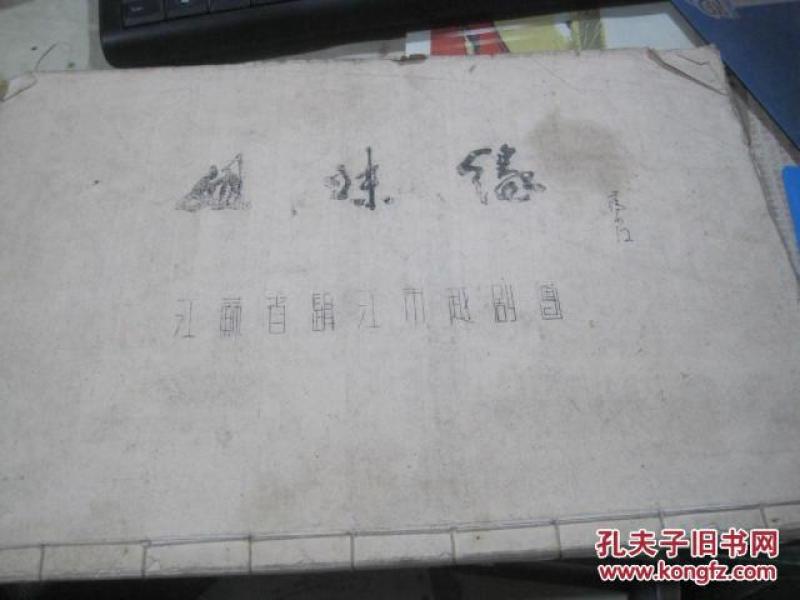 姐妹缘
江苏省镇江市越剧团
孔夫子旧书网
www.kongfz.com